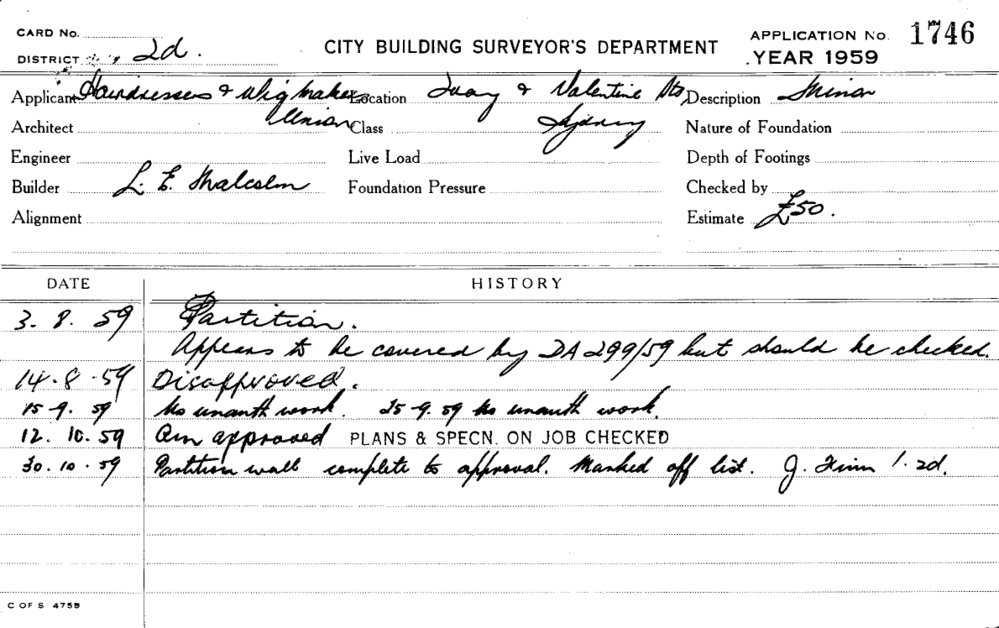 CARD No. CITY BUILDING SURVEYOR'S DEPARTMENT APPLICATION No. 1746
DISTRICT 2d. YEAR 1959
Applicant Hairdressers & Wigmakers Location Quay & Valentine Sts Description Minor
Architect Union Class Sydney Nature of Foundation
Engineer Live Load Depth of Footings
Builder L. E. Malcolm Foundation Pressure Checked by
Alignment Estimate £50.
DATE HISTORY
3. 8. 59 Partition.
Appears to be covered by DA 299/59 but should be checked.
14. 8. 59 Disapproved.
15. 9. 59 No unauth work. 25. 9. 59 No unauth work.
12. 10. 59 approved PLANS & SPECN. ON JOB CHECKED
30. 10. 59 Partition wall complete to approval. Marked off list. J. 2d.
C OF S 4759